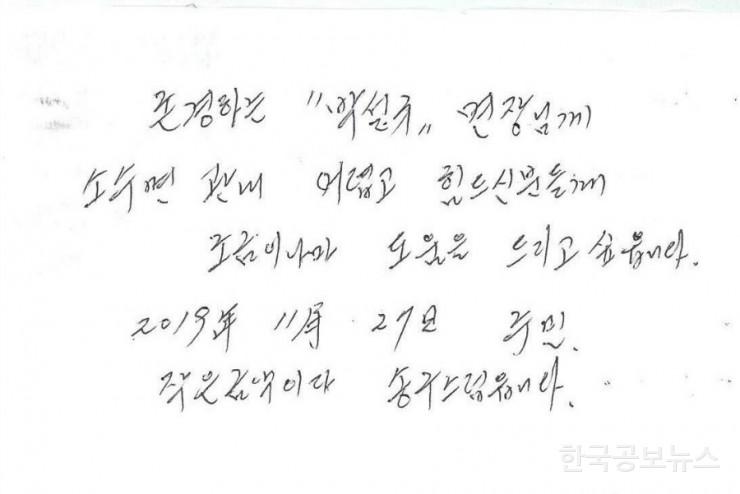 존경하는 "박설규" 면장님게
소수면 관내 어렵고 힘드신분들게
조금이나마 도움을 드리고 싶읍니다.
2019年 11月 27日 주민.
작은금액이라 송구스럽읍니다.
한국공보뉴스